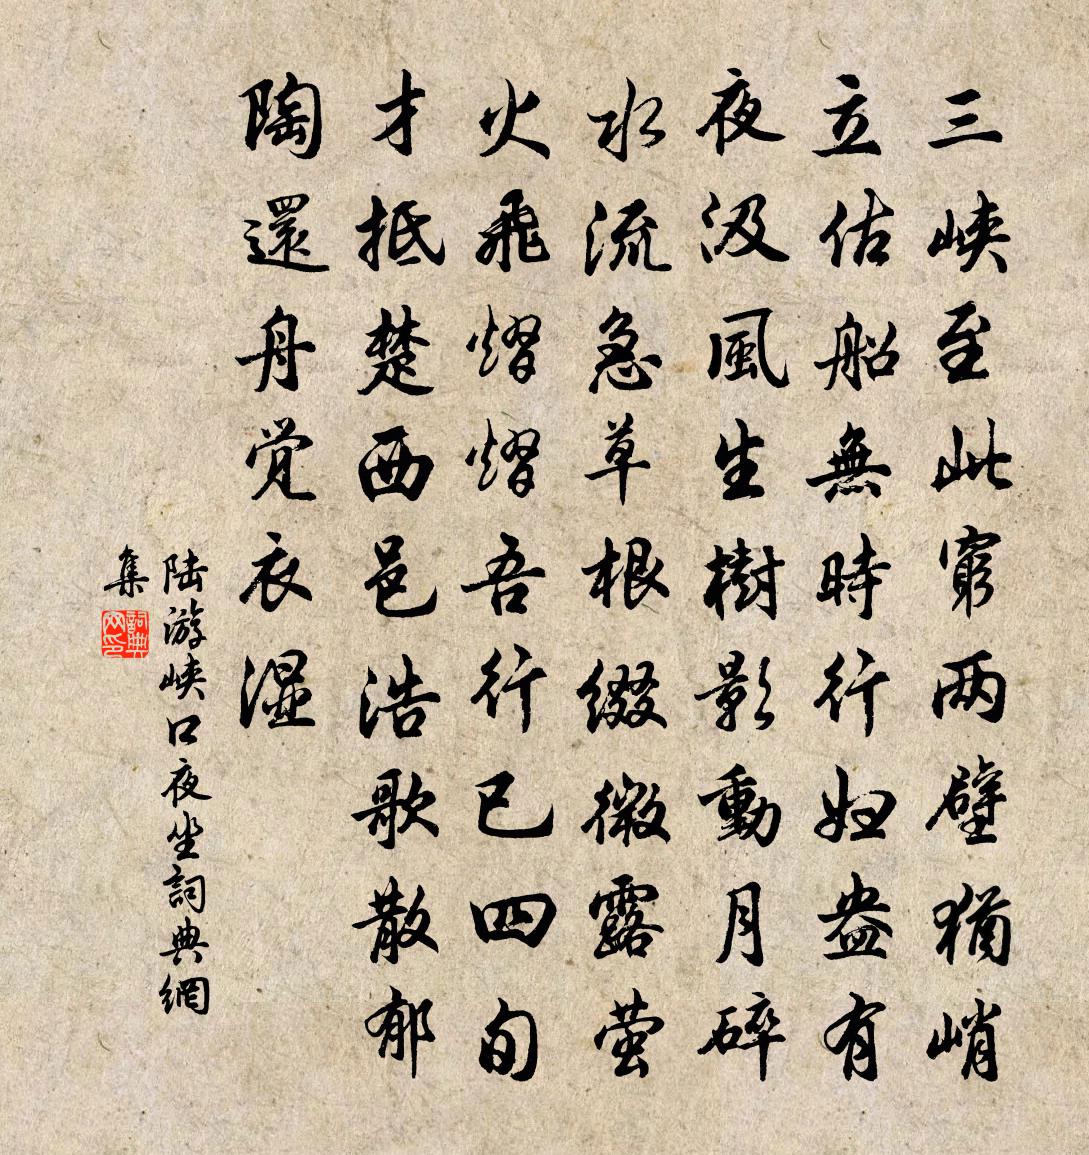 三峽至此窮兩壁猶峭
立估船無時行妲盎有
夜汲風生樹影動月碎
水流急草根綴微露萤
火飛熠熠吾行已四旬
才抵楚西邑浩歌散郁
陶還舟觉衣湿
陆游峡口夜坐詞典網
集
詞典网印